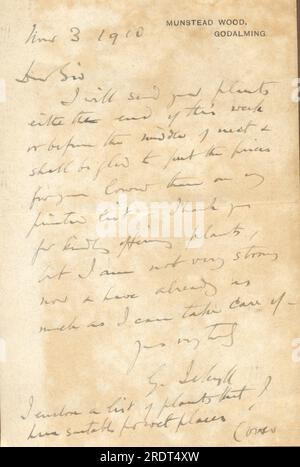 MUNSTEAD WOOD,
GODALMING.
Nov 3 1910
Dear Sir
I will send your plants
either the end of this week
or before the middle of next &
shall be glad to put the prices
for you lower than on my
printed list. Thank you
for kindly offering plants,
but I am not very strong
now & have already as
much as I can take care of —
Yours very truly
G. Jekyll
I enclose a list of plants that I
have suitable for wet places
(over
alamy
Image ID: 2RDT4XW
www.alamy.com